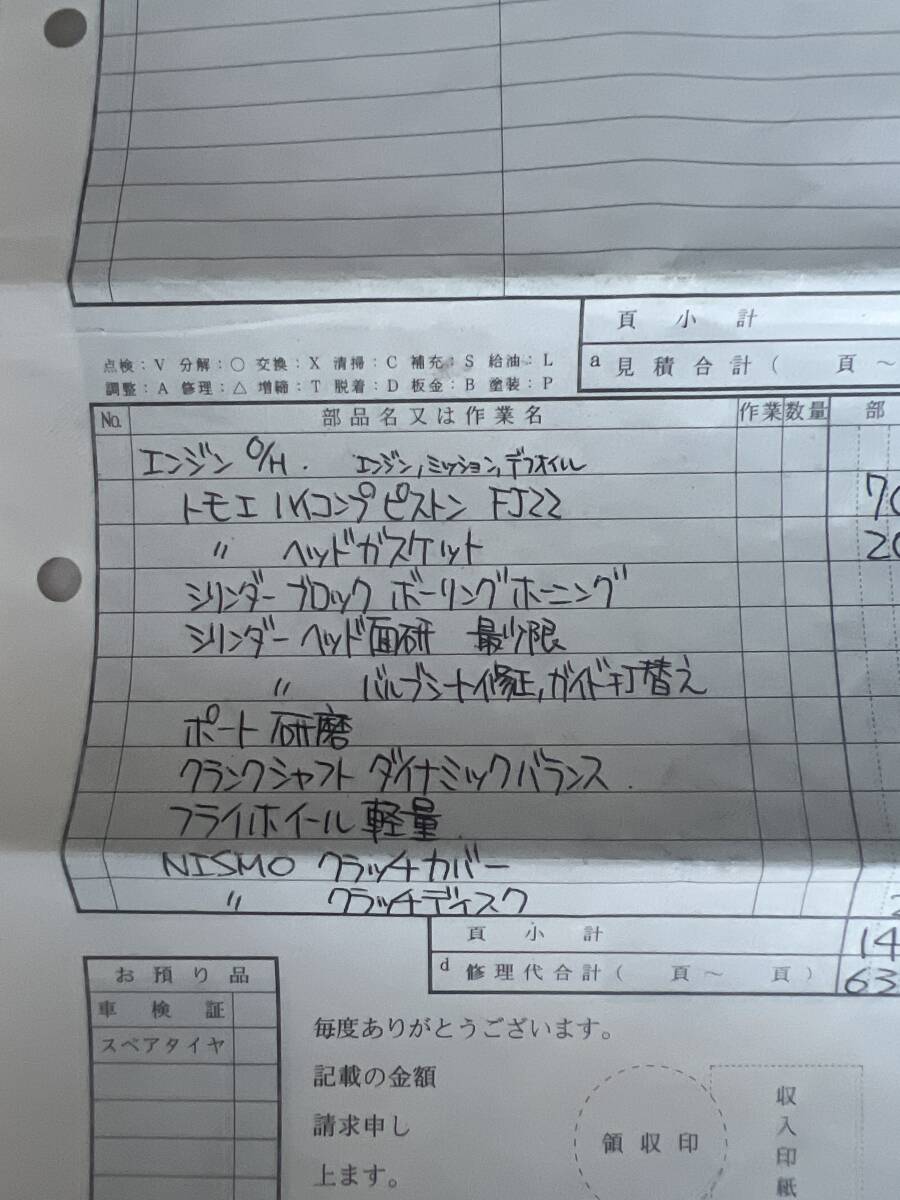 頁 小 計
a 見積合計( 頁～
点検：V 分解：○ 交換：X 清掃：C 補充：S 給油：L
調整：A 修理：△ 増締：T 脱着：D 板金：B 塗装：P
No. 部品名又は作業名 作業 数量 部
エンジン O/H. エンジン,ミッション,デフオイル
トモエ ハイコンプピストン FJ22 70
〃 ヘッドガスケット 20
シリンダーブロック ボーリングホーニング
シリンダーヘッド面研 最少限
〃 バルブシート修正,ガイド打替え
ポート研磨
クランクシャフト ダイナミックバランス.
フライホイール軽量
NISMO クラッチカバー
〃 クラッチディスク 2
頁 小 計 14
d 修理代合計( 頁～ 頁) 63
お預り品
車検証
スペアタイヤ
毎度ありがとうございます。
記載の金額
請求申し
上ます。
領収印
収入印紙